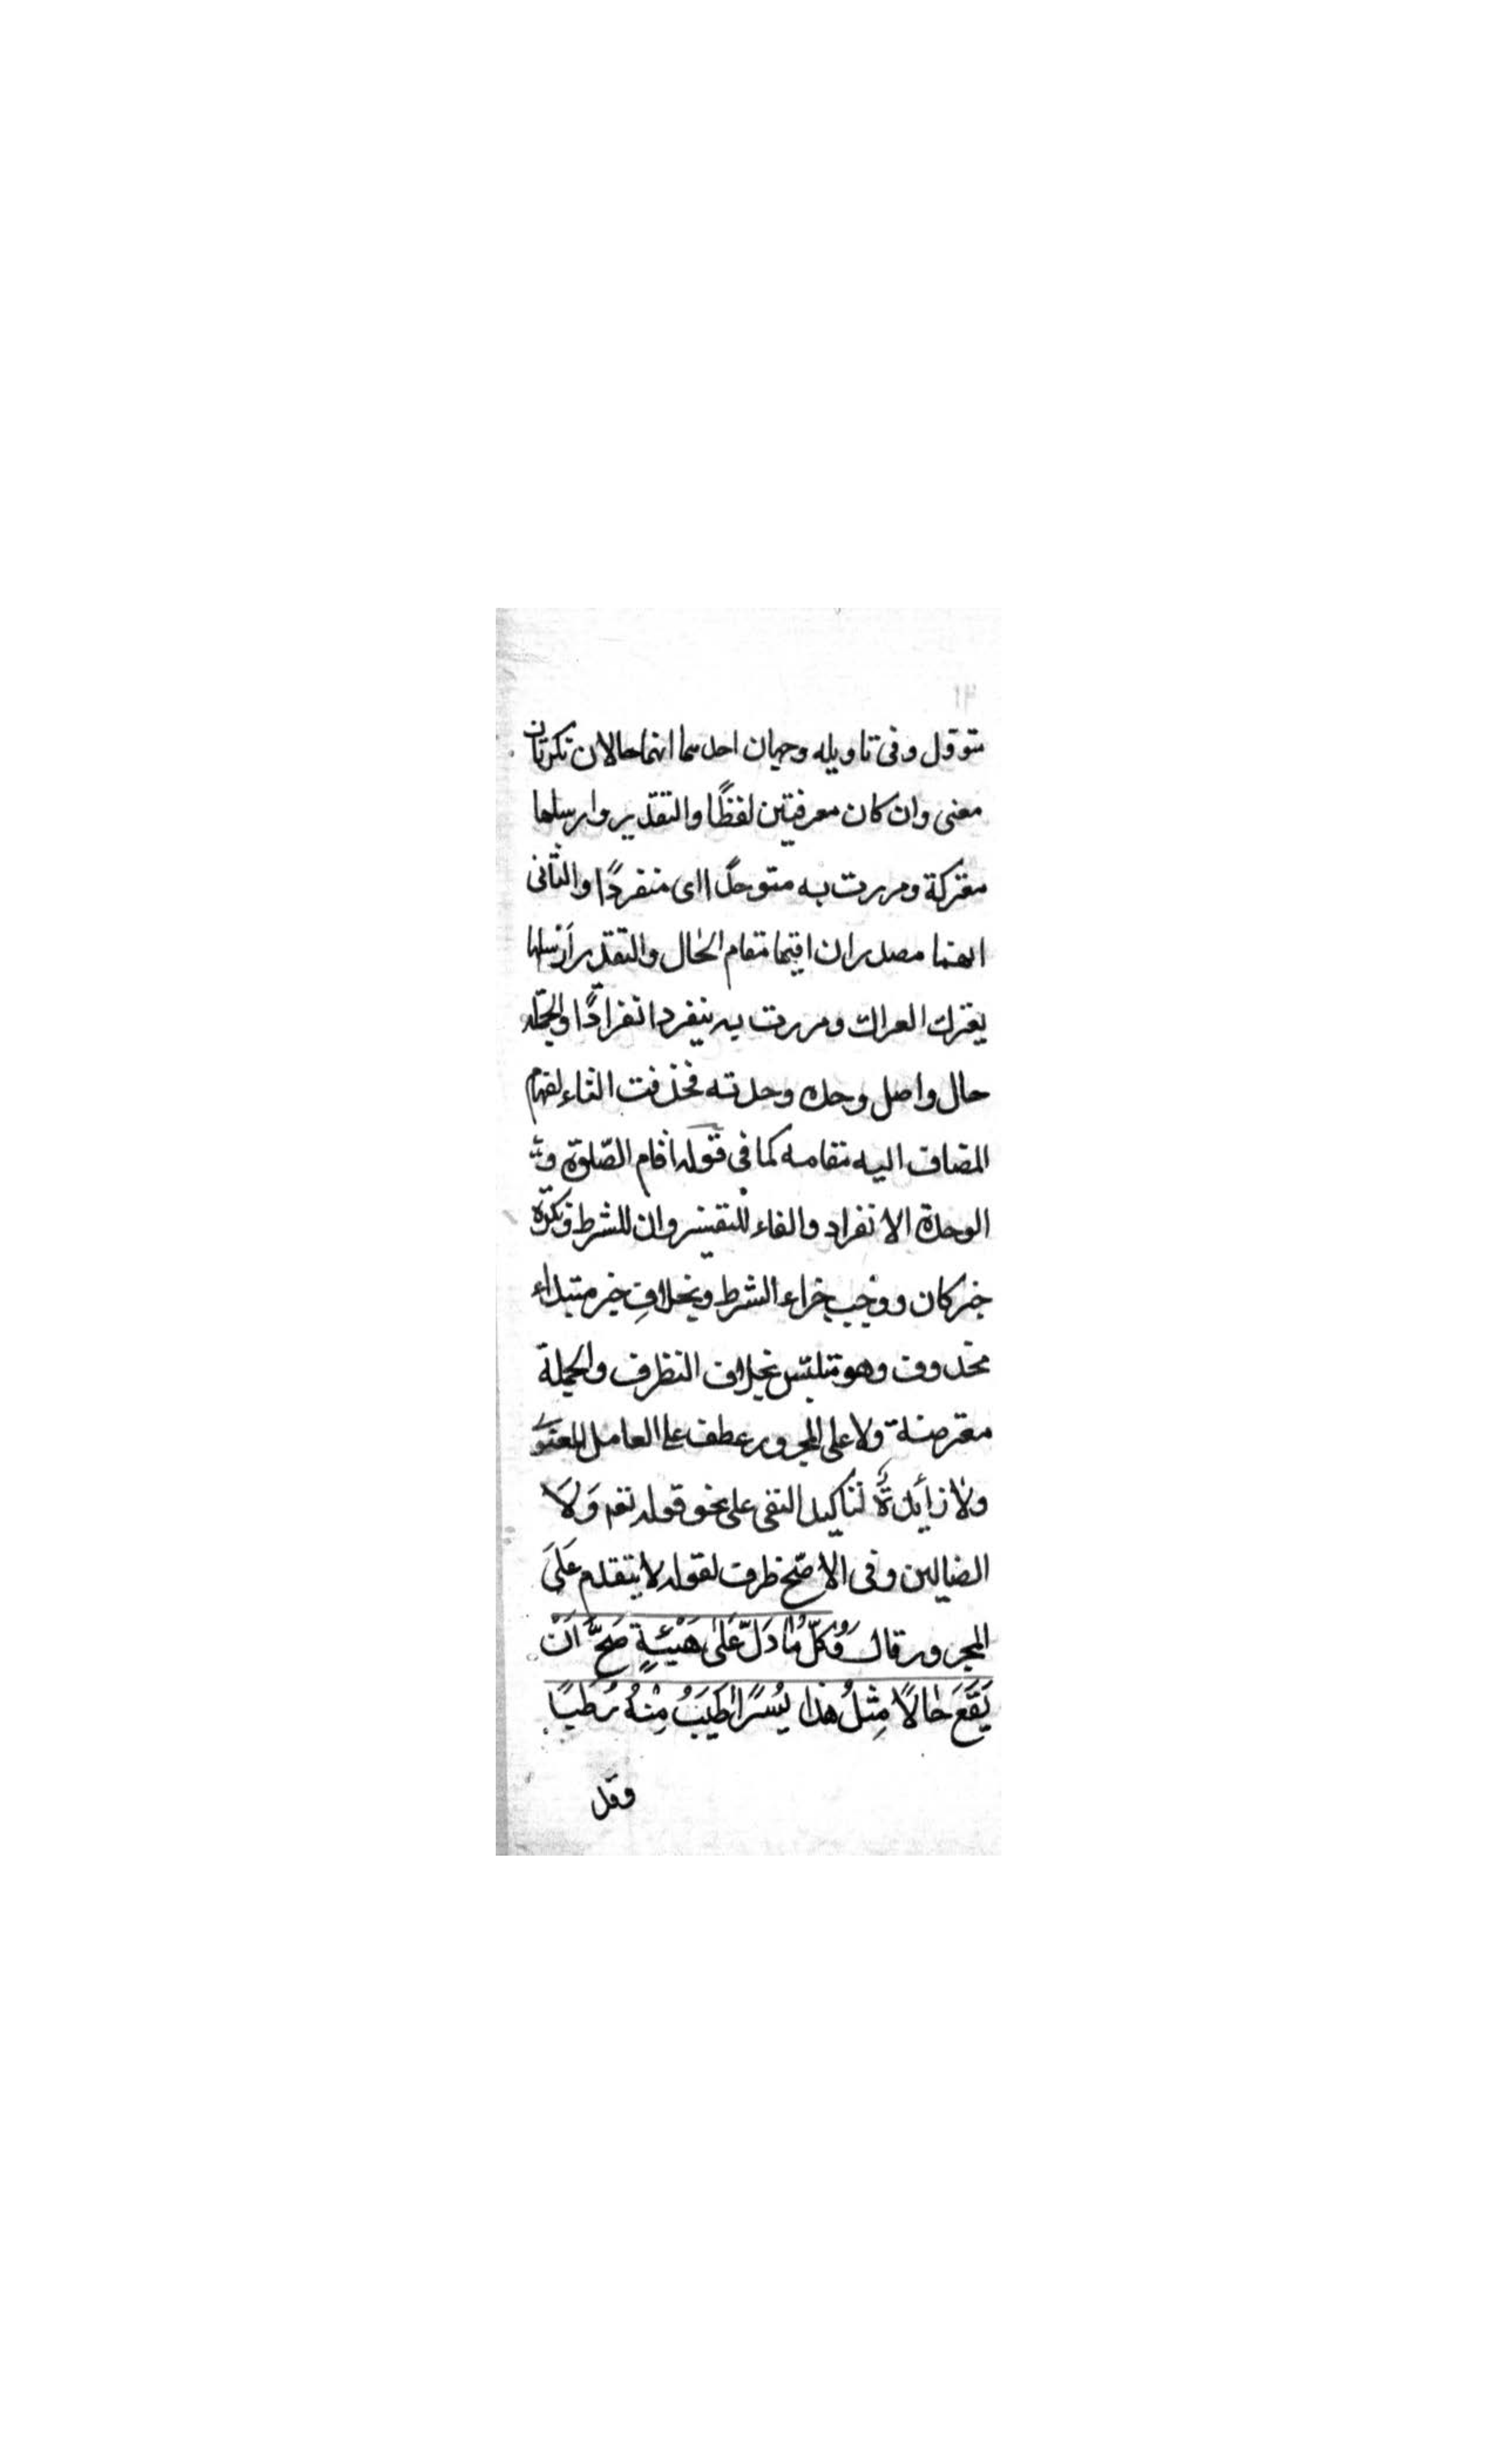 متوول وفى تاويله وجهان احدهما انهما حالان نكرتان
معنى وان كان معرفتين لفظًا والتقدير وارسلها
معتركة ومررت به متوحدًا اى منفردًا والثانى
انهما مصدران اقيما مقام الحال والتقدير أرسلها
يعترك العراك ومررت به ينفرد انفرادًا والجملة
حال واصل وحده وحدته فحذفت التاء لقيام
المضاف اليه مقامه كما فى قوله اقام الصّلوة و
الوحدة الانفراد والفاء للتفسير وان للشرط ونكرة
خبر كان ووجب جزاء الشرط وبخلافِ خبر مبتداء
محذوف وهو متلبّس بخلاف الظرف والجملة
معترضة ولا على المجرور عطف على العامل المعنوى
ولا زائدةٌ لتأكيد النفى على نحو قوله تعم وَلَا
الضالين وفى الاصّح ظرف لقوله لا يتقدم عَلَىَ
المجرور قال وَكُلّ مَا دَلَّ عَلىٰ هَيْئَةٍ صَحَّ اَنْ
يَقَعَ حٰالاً مِثْلُ هٰذا بُسْرًا اَطْيَبُ مِنْهُ رُطَبًا
وقل